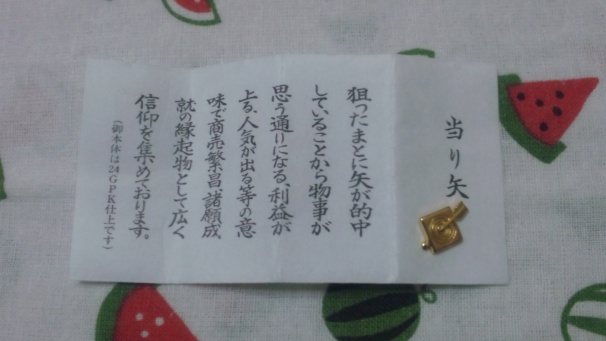 当り矢
狙ったまとに矢が的中
していることから物事が
思う通りになる、利益が
上る、人気が出る等の意
味で商売繁昌諸願成
就の縁起物として広く
信仰を集めております。
（御本体は24GPK仕上です）